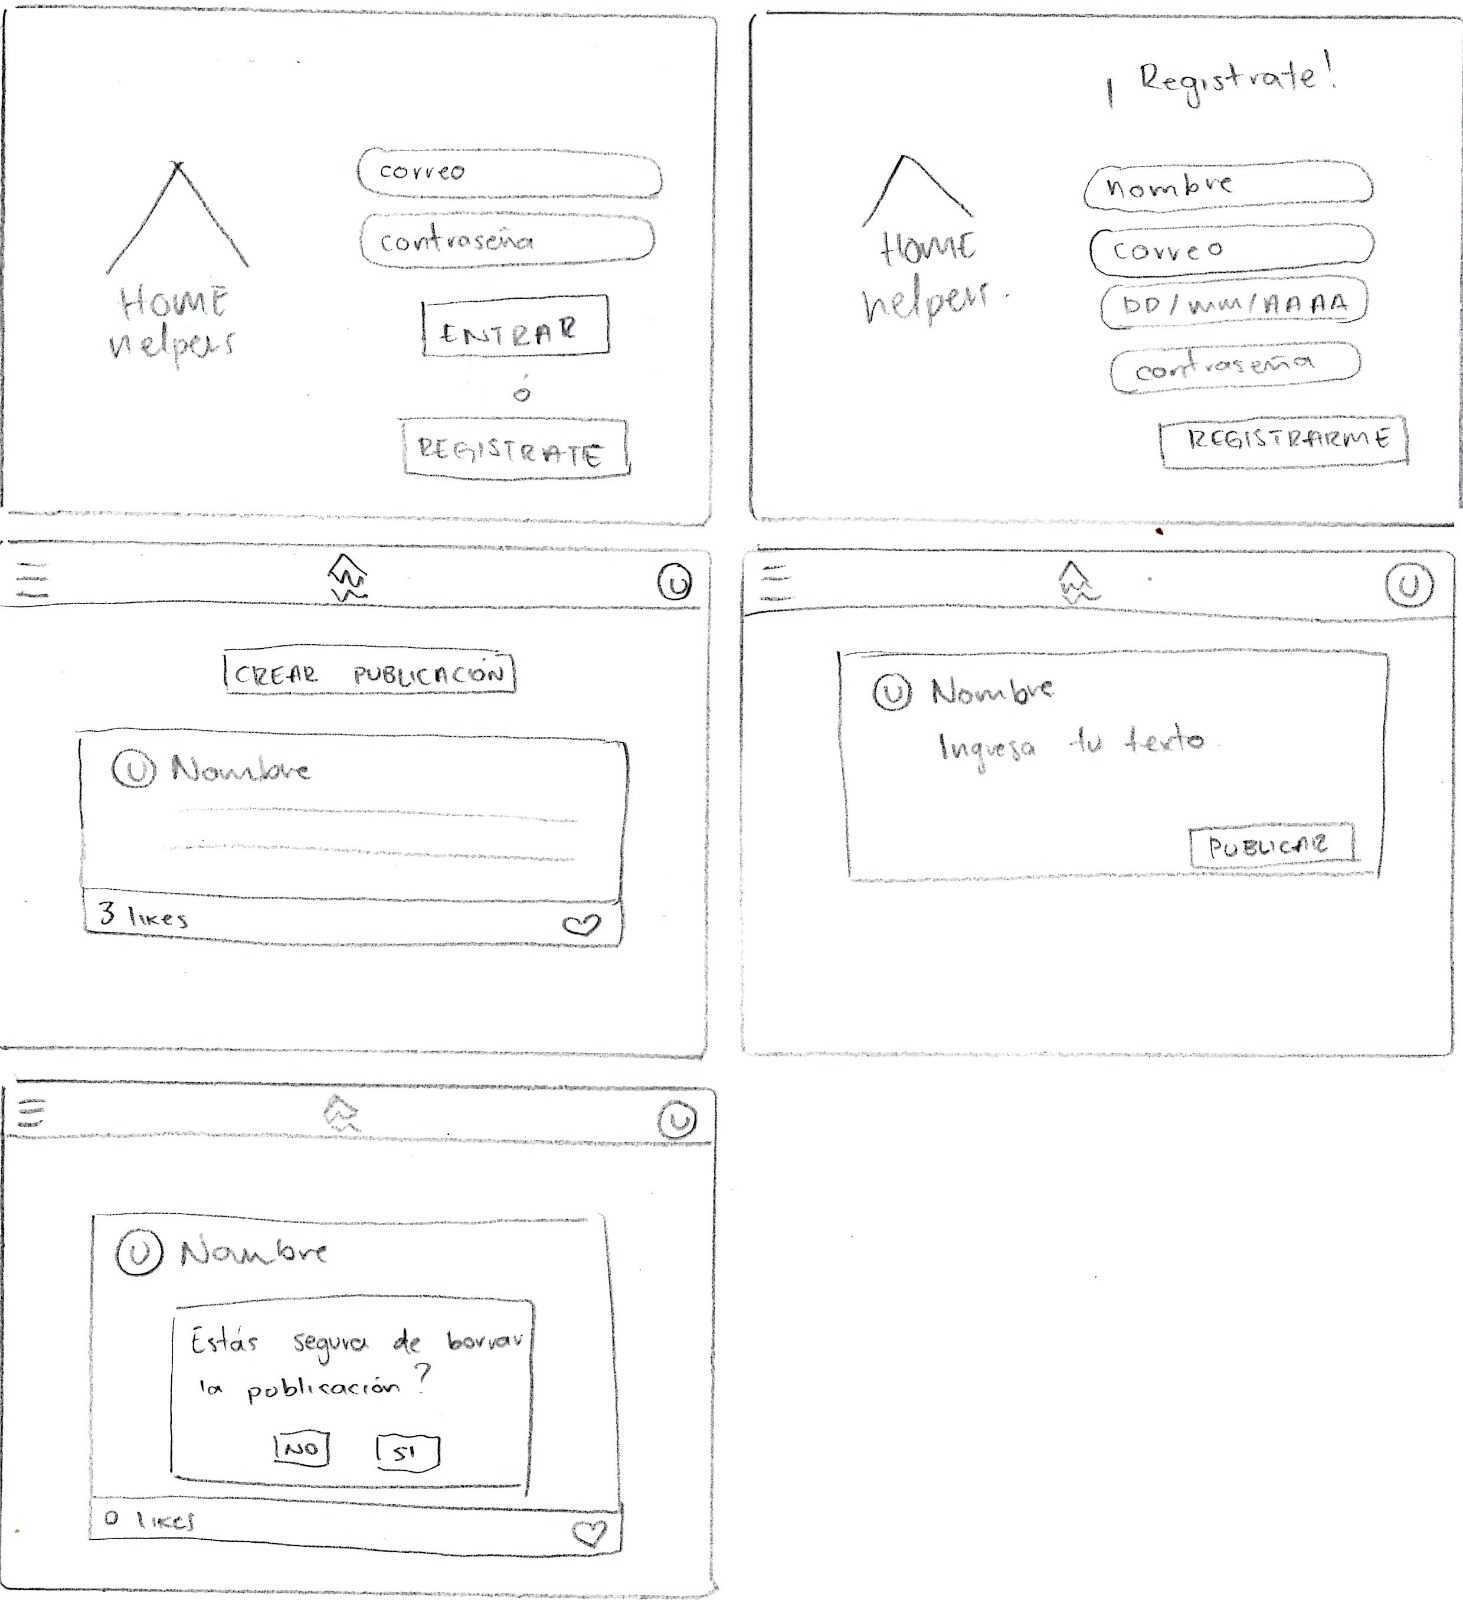 HOME
helpers
correo
contraseña
ENTRAR
ó
REGISTRATE
¡Registrate!
HOME
helpers.
nombre
correo
DD/mm/AAAA
contraseña
REGISTRARME
U
CREAR PUBLICACIÓN
U Nombre
3 likes
U
U Nombre
Ingresa tu texto.
PUBLICAR
U
U Nombre
Estás segura de borrar
la publicación?
NO SI
0 likes